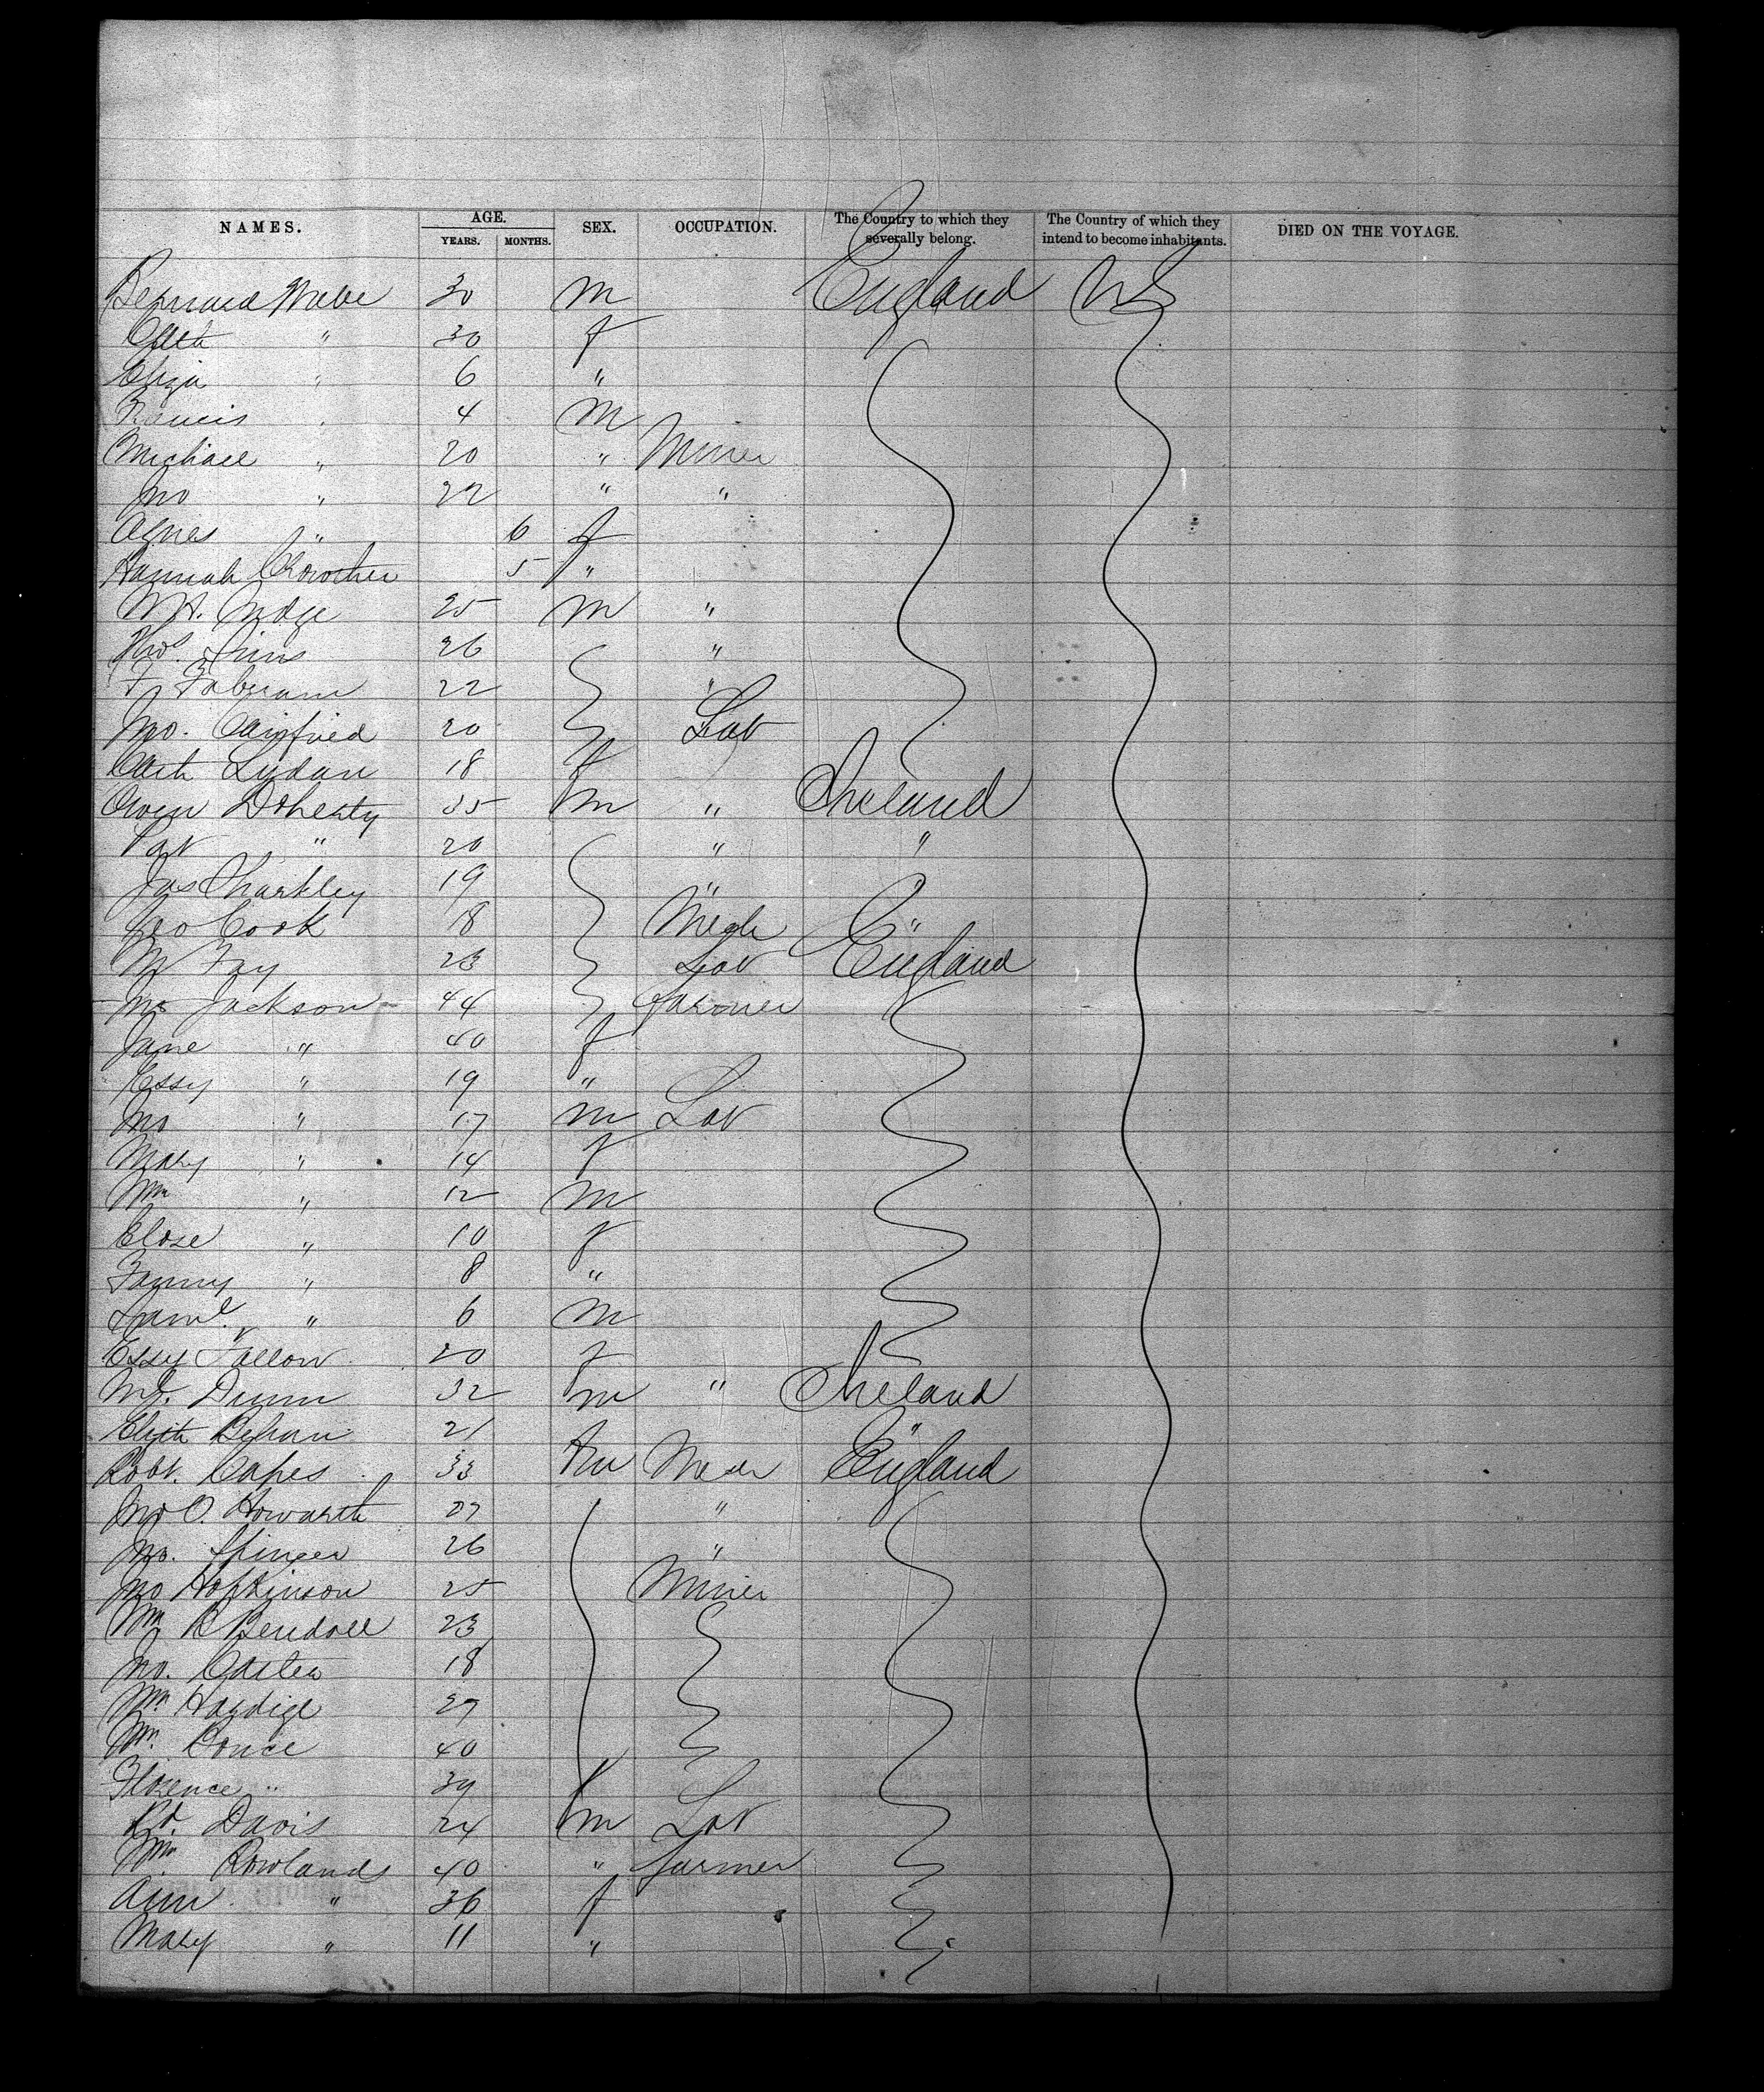 NAMES. AGE. YEARS. MONTHS. SEX. OCCUPATION. The Country to which they severally belong. The Country of which they intend to become inhabitants. DIED ON THE VOYAGE.
Bernard 30 m England US
Cath " 30 f
Eliza " 6 "
Francis " 4 M
Michael " 20 " Miner
Jno " 22 " "
Agnes " 6 f
Hannah Crowther 5 "
25 m "
Thos. 26 "
F. 22 "
Jno. 20 Lab
Cath Lydan 18 f
Owen Doherty 35 m " Ireland
Pat " 20 " "
Jas Sharkley 19 " "
Geo Cook 18 Mech "
M Fay 23 Lab England
Jno Jackson 44 Farmer
Jane " 40 f
Essy " 19 "
Jno " 17 m Lab
Mary " 14 f
Wm " 12 M
" 10 f
Fanny " 8 "
Saml. " 6 M
Essy Fallow 20 f
Dunn 32 m " Ireland
Elizth 21 f "
Robt. Capes 33 m Mech England
Jno O. Howarth 27 "
Jno. 26 "
Jno Hopkinson 25 Miner
Wm B Bendall 23
Jno. Carter 18
Wm 27
Wm. 40
Florence " 39 f
Rd. Davis 24 m Lab
Wm. Rowlands 40 " farmer
Ann " 36 f
Mary " 11 "